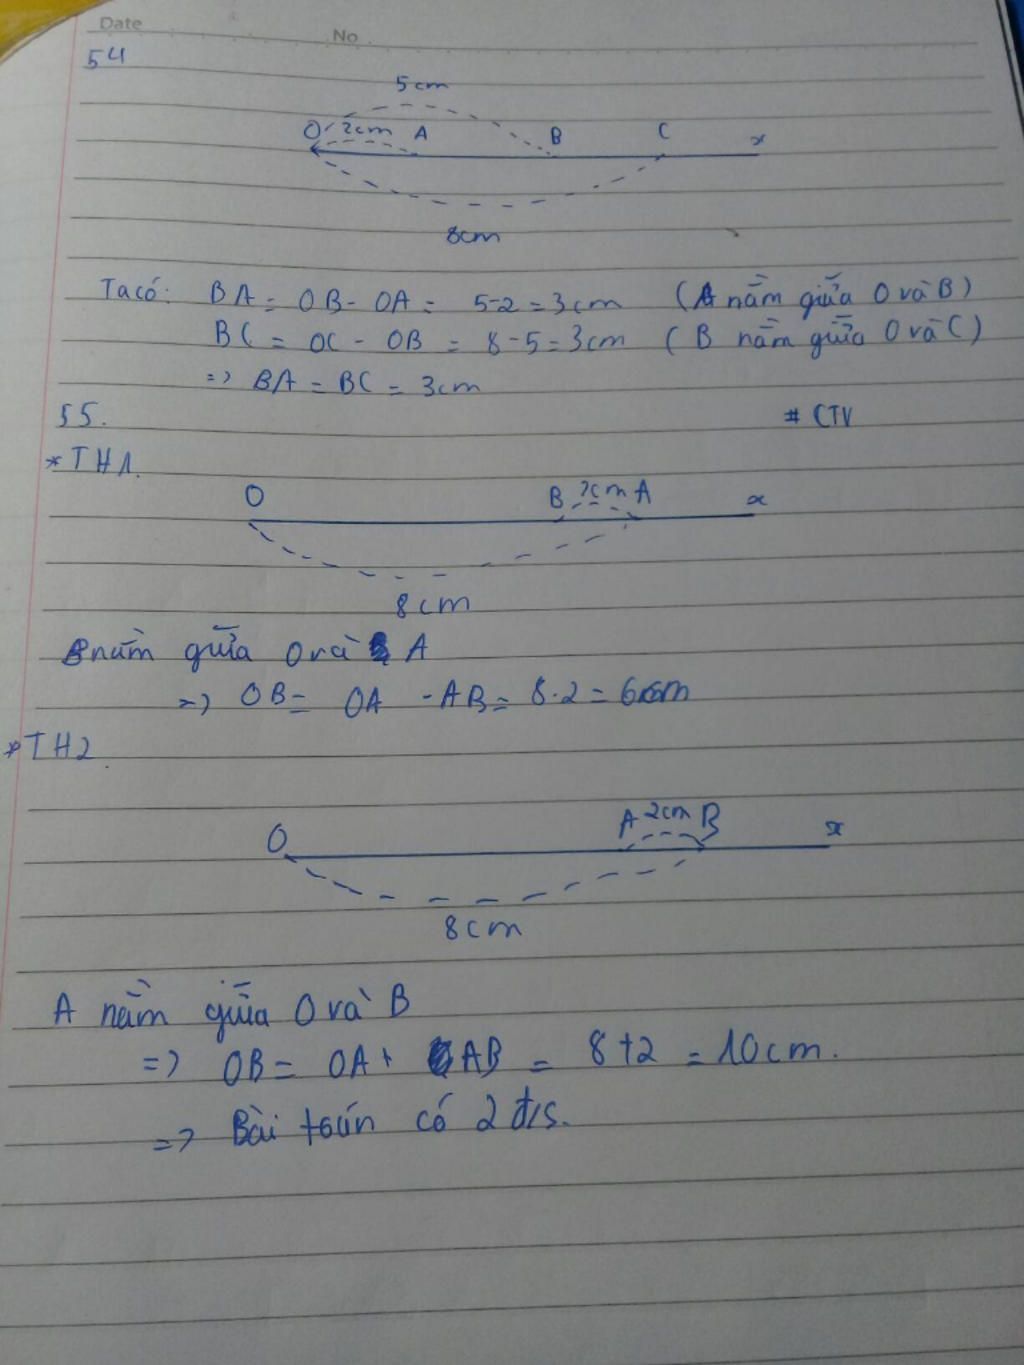 Date
No
54
5cm
O 2cm A B C x
8cm
Ta có: BA = OB - OA = 5-2 = 3cm (A nằm giữa O và B)
BC = OC - OB = 8-5 = 3cm (B nằm giữa O và C)
=> BA = BC = 3cm
55.
# CTV
*TH1.
O B 2cm A x
8cm
B nằm giữa O và A
=> OB = OA - AB = 8-2 = 6cm
*TH2.
O A 2cm B x
8cm
A nằm giữa O và B
=> OB = OA + AB = 8+2 = 10cm.
=> Bài toán có 2 đ/s.